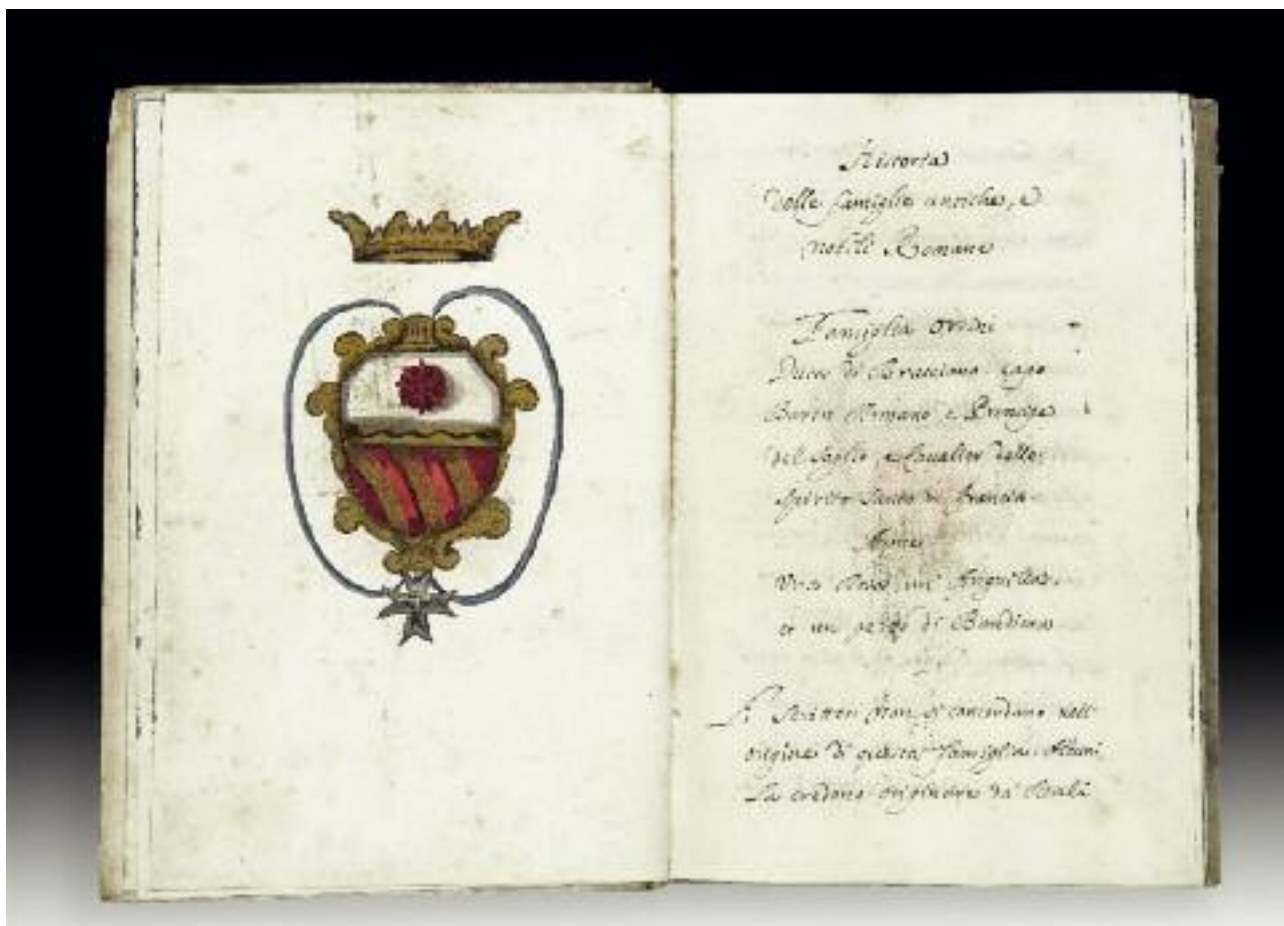 Historia
delle famiglie antiche, e
nobili Romane
Famiglia Orsini
Duca di Bracciano Capo
Baron Romano e Principe
del Soglio e Cavalier dello
Spirito Santo di Francia
Arme
Una Rosa un' Anguilla
et un di Bandiera
Scrittori non si concordano nell'
origine di questa famiglia. Alcuni
La credono da